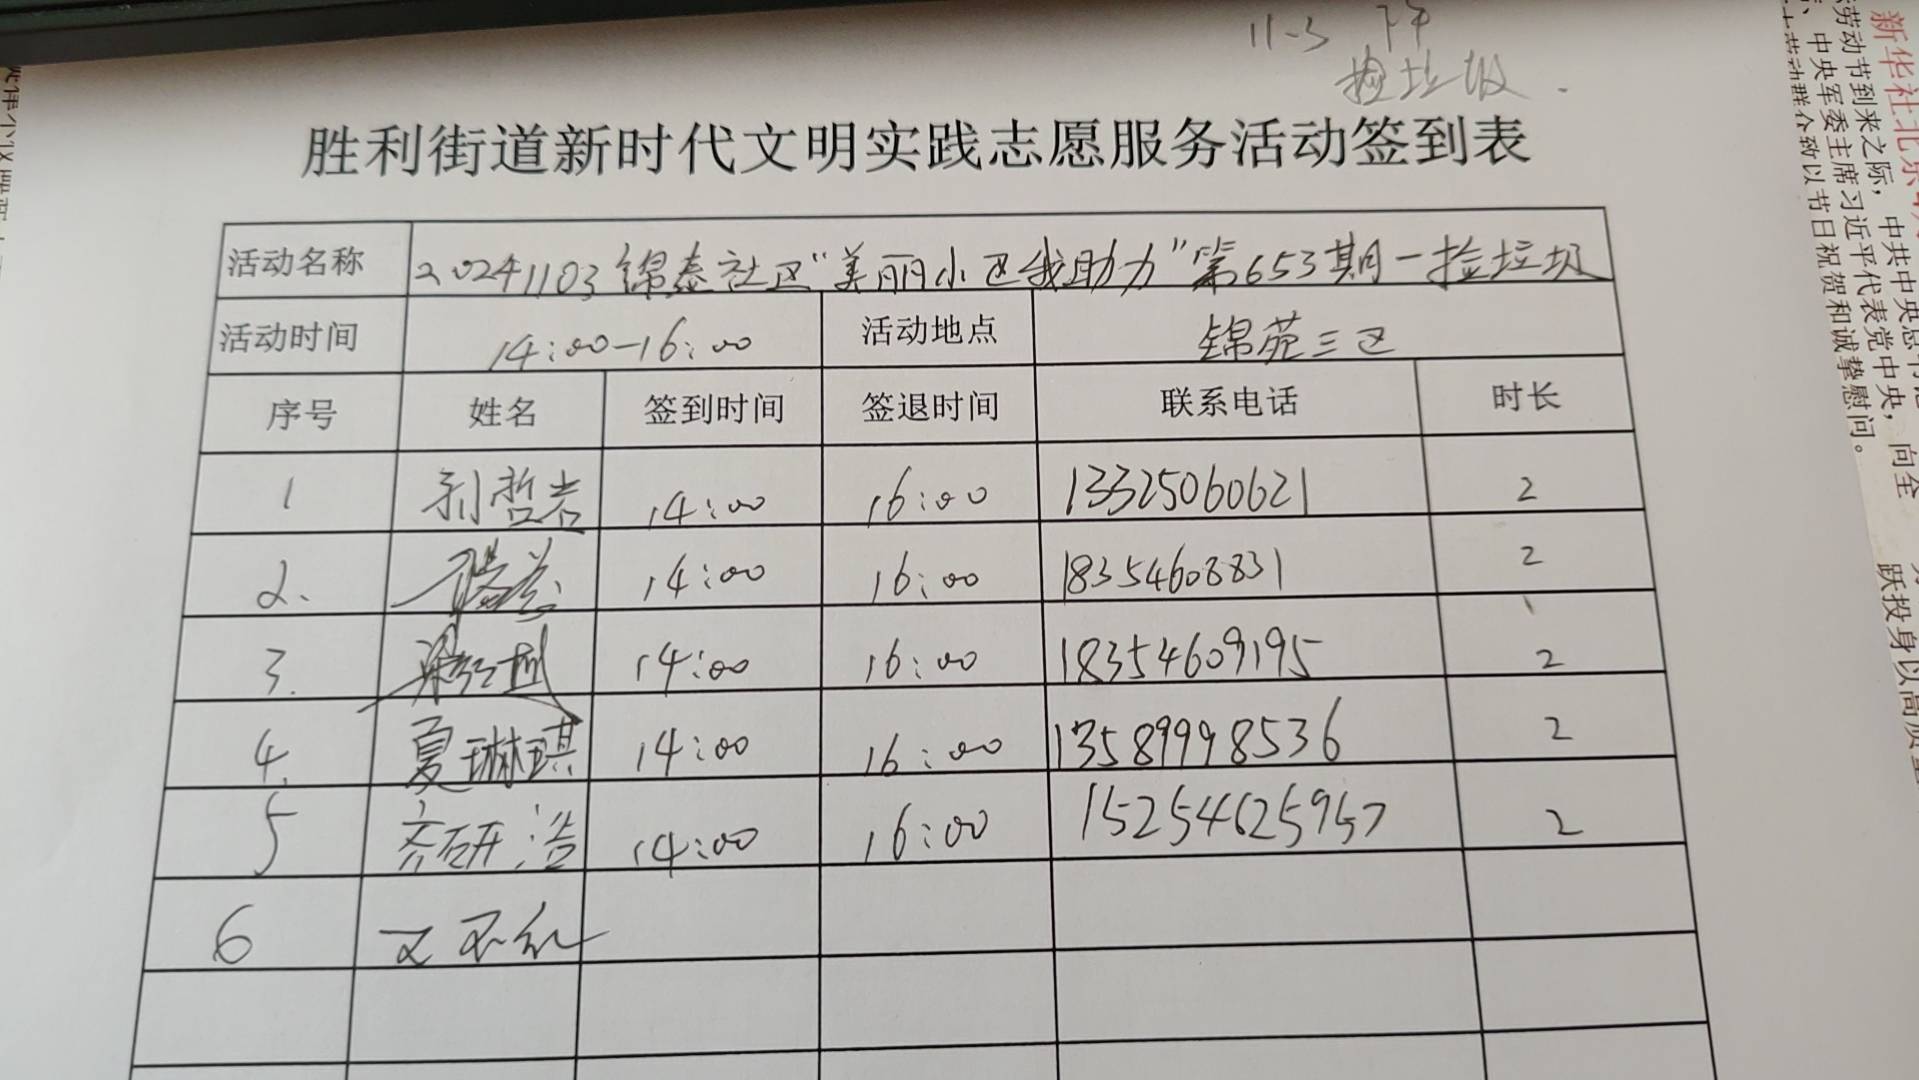 11-3 下午
捡垃圾.
胜利街道新时代文明实践志愿服务活动签到表
活动名称 20241103锦泰社区“美丽小区我助力”第653期-捡垃圾
活动时间 14:00-16:00 活动地点 锦苑三区
序号 姓名 签到时间 签退时间 联系电话 时长
1 14:00 16:00 13325060621 2
2. 14:00 16:00 18354608831 2
3. 14:00 16:00 18354609195 2
4. 夏琳琪 14:00 16:00 13589998536 2
5 齐研浩 14:00 16:00 15254625957 2
6
新华社北京
劳动节到来之际,中共中央总书记
、中央军委主席习近平代表党中央,向全
致以节日祝贺和诚挚慰问。
跃投身以高质量